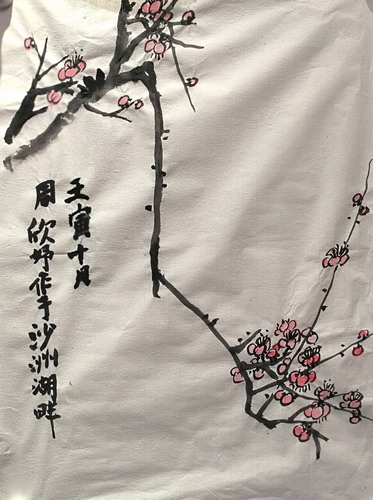 壬寅十月
周欣妤作于沙洲湖畔